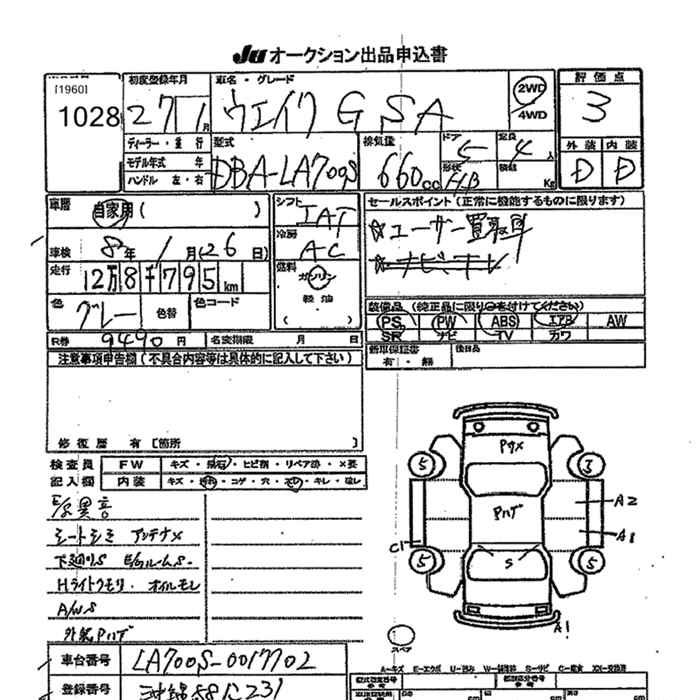 Ju オークション出品申込書
[1960]
1028
初度登録年月
27 1月
車名・グレード
ウエイク GSA
2WD
4WD
評価点
3
ディーラー・並行
モデル年式 年
ハンドル 左・右
型式
DBA-LA700S
排気量
660cc
ドア
5
形状
HB
定員
4人
積載
Kg
外装 内装
D D
車歴
自家用 ( )
車検
8年 1月(26日)
走行
12万8千795km
色
グレー
色替
色コード
R券
9490円
名変期限 月 日
シフト
IAT
冷房
AC
燃料
ガソリン
軽油
( )
セールスポイント (正常に機能するものに限ります)
☆ユーザー買取車
☆ナビ・テレ
装備品 (純正品に限り○を付けてください)
PS PW ABS エアB AW
SR ナビ TV カワ
新車保証書
有・無
後日品
注意事項申告欄 (不具合内容等は具体的に記入して下さい)
修復歴 有 [箇所
検査員
記入欄
FW キズ・飛石・ヒビ割・リペア済・X要
内装 キズ・汚れ・コゲ・穴・スレ・キレ・破レ
E/G異音
シートシミ アンテナX
下廻りS E/GルームS-
Hライトクモリ オイルモレ
A/W S
外装Pハゲ
車台番号
LA700S-0017702
登録番号
Pサメ
Pハゲ
S
5
3
5
5
A2
A1
C1
A1
スペア
A-キズ E-エクボ U-凹み W-補修跡 S-サビ C-腐食 XX-交換済